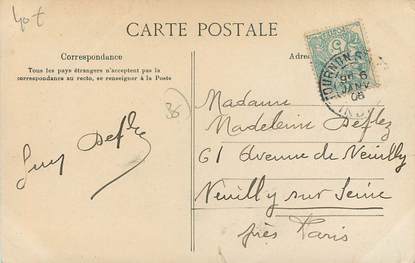 CARTE POSTALE
Correspondance
Tous les pays étrangers n'acceptent pas la
correspondance au recto, se renseigner à la Poste
Adre
TOURNON
6
JANV
08
Madame
Madeleine Deflez
61 Avenue de Neuilly
Neuilly sur Seine
près Paris
Guy Deflez